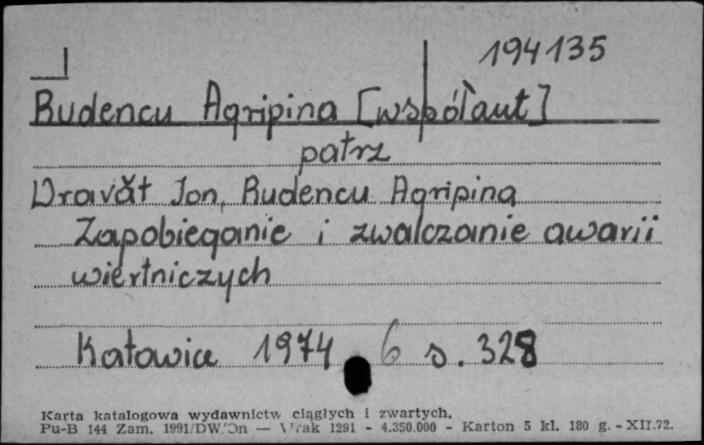 194135
Budencu Agripina [współaut]
patrz
Dravăt Jon, Budencu Agripina
Zapobieganie i zwalczanie awarii
wiertniczych
Katowice 1974 6 s. 328
Karta katalogowa wydawnictw ciągłych i zwartych.
Pu-B 144 Zam. 1991/DW/On — 1291 - 4.350.000 - Karton 5 kl. 180 g. - XII.72.